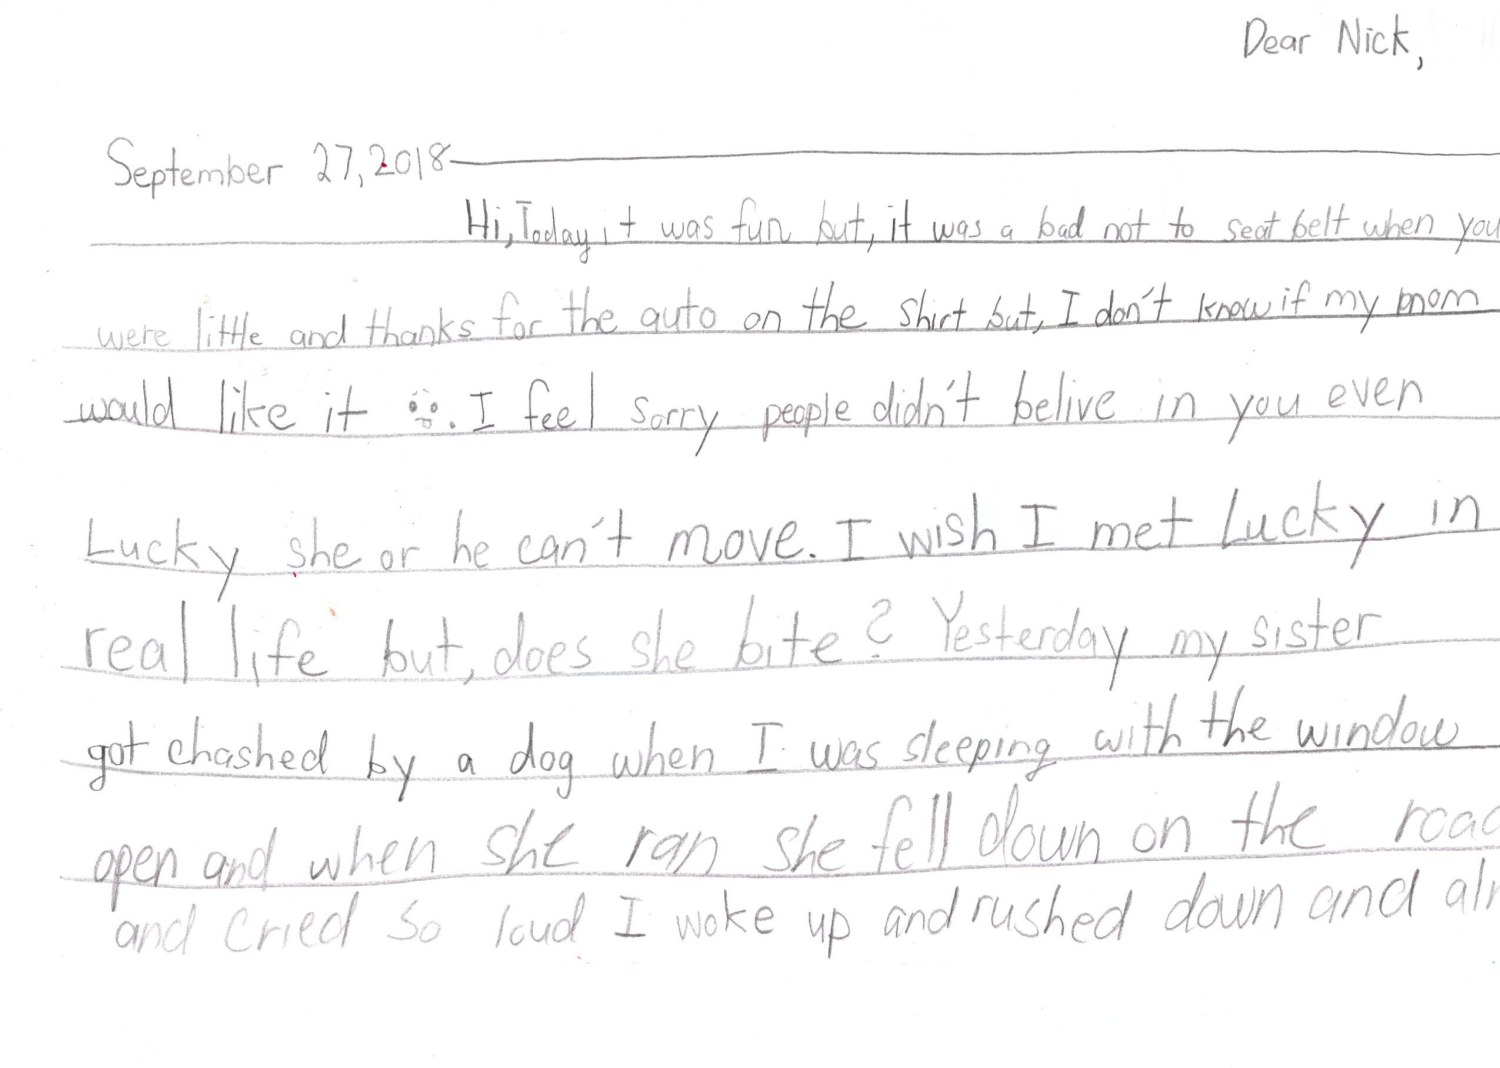 Dear Nick,
September 27, 2018
Hi, Today it was fun but, it was a bad not to seat belt when you
were little and thanks for the auto on the shirt but, I don't know if my mom
would like it ☹. I feel sorry people didn't belive in you even
Lucky she or he can't move. I wish I met Lucky in
real life but, does she bite? Yesterday my sister
got chashed by a dog when I was sleeping with the window
open and when she ran she fell down on the
and cried so loud I woke up and rushed down and